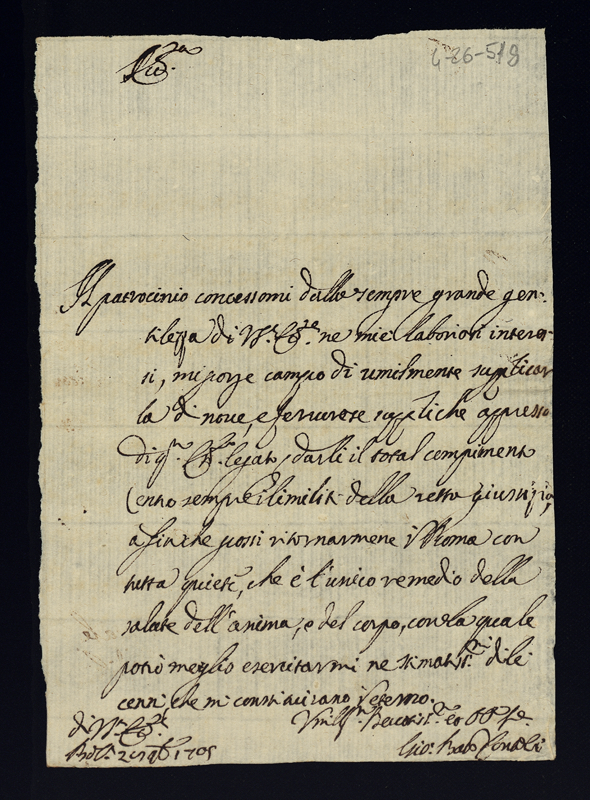 4-26-518
Il patrocinio concessomi dalla sempre grande gen-
tilezza di V. ne miei laboriosi interes-
si, mi porge campo di umilmente supplicar
la di nove, e fervorose suppliche appresso
di q.to legato, darli il total compimento
(entro sempre i limiti della retta giustizia,
afinche possi ritornarmene Roma con
tutta quiete, che è l'unico remedio della
salute dell'anima, e del corpo, con la quale
potrò meglio esercitarmi ne stimatiss.mi di lei
cenni, che mi constituirano
di V.
1705
Gio: